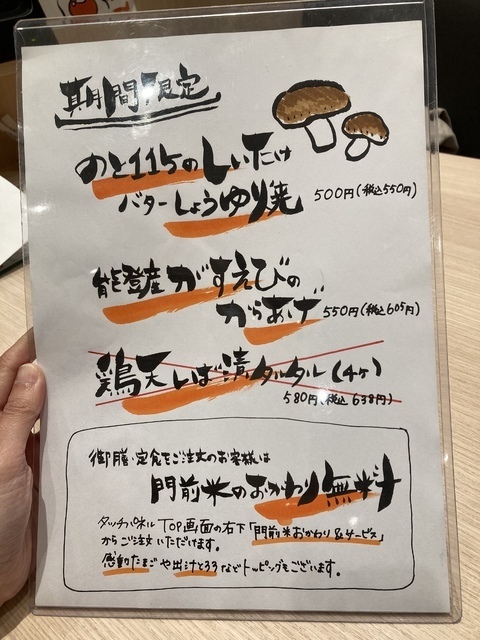 期間限定
のと115のしいたけ
バターしょうゆ焼 500円(税込550円)
能登産がすえびの
からあげ 550円(税込605円)
鶏天しば漬タルタル(4ヶ)
580円(税込638円)
御膳・定食をご注文のお客様は
門前米のおかわり無料
タッチパネルTOP画面の右下「門前米おかわり&サービス」
からご注文いただけます。
感動たまごや出汁とろろなどトッピングもございます。